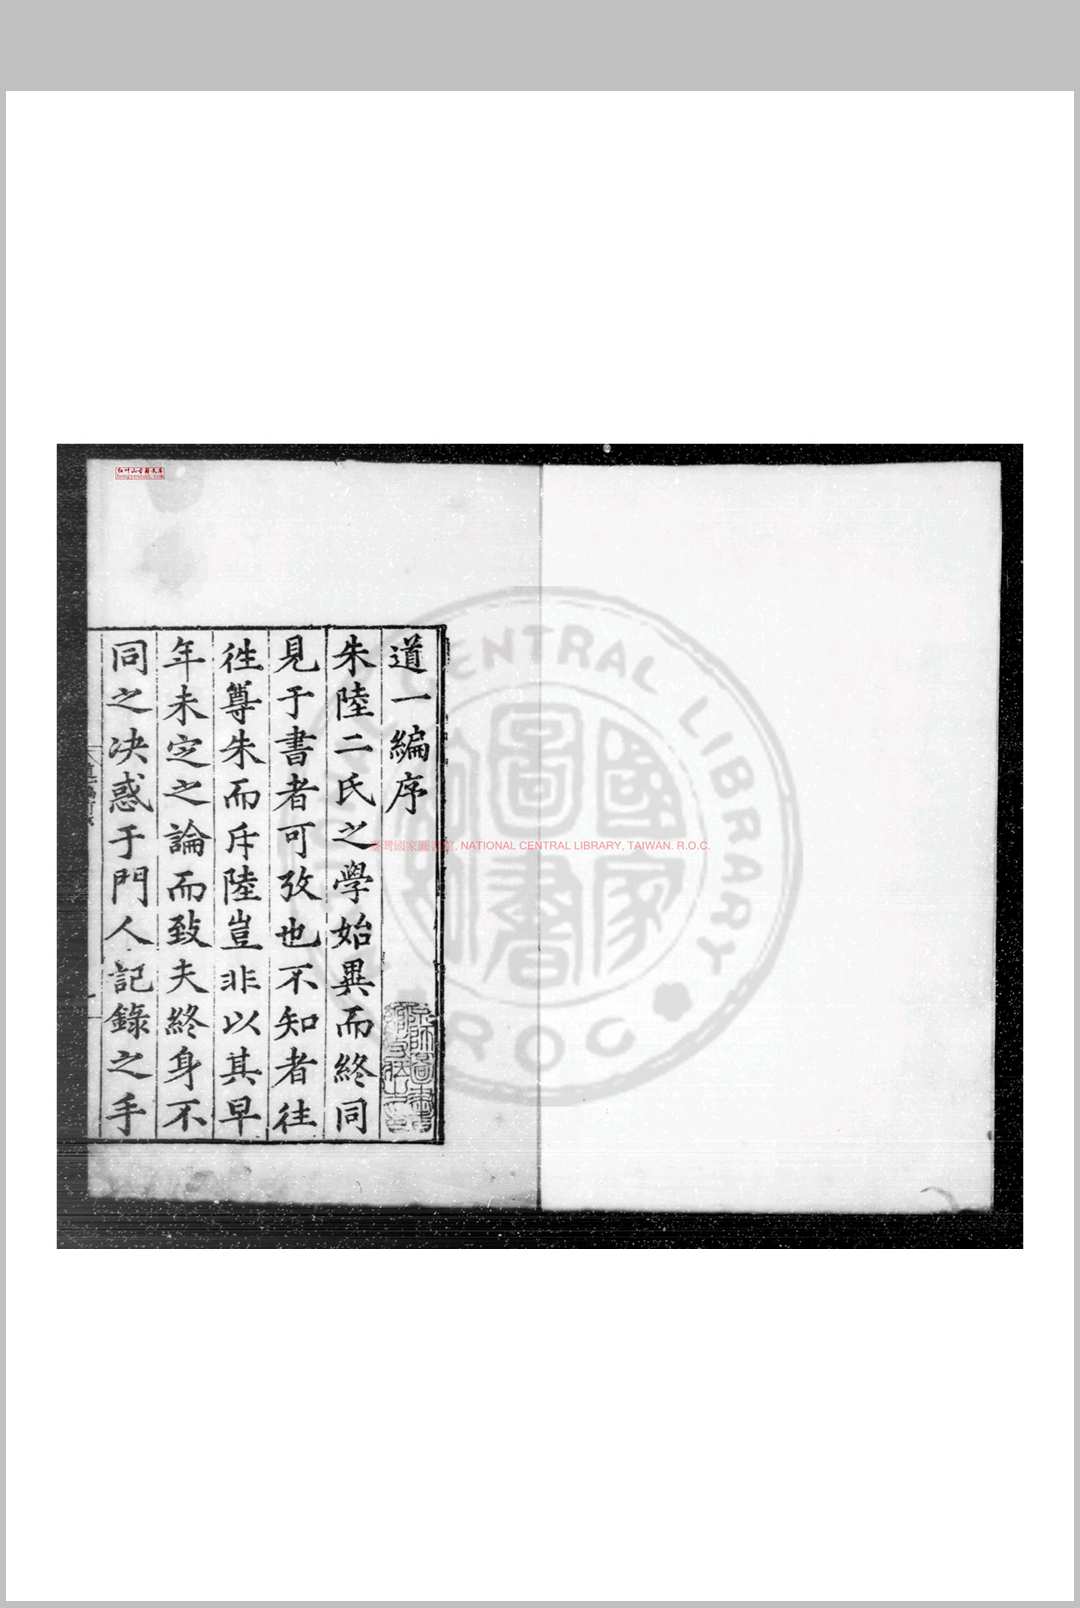 道一編序
朱陸二氏之學始異而終同
見于書者可攷也不知者往
徃尊朱而斥陸豈非以其早
年未定之論而致夫終身不
同之决惑于門人記錄之手
國家圖書館, NATIONAL CENTRAL LIBRARY, TAIWAN. R.O.C.
CENTRAL LIBRARY
ROC